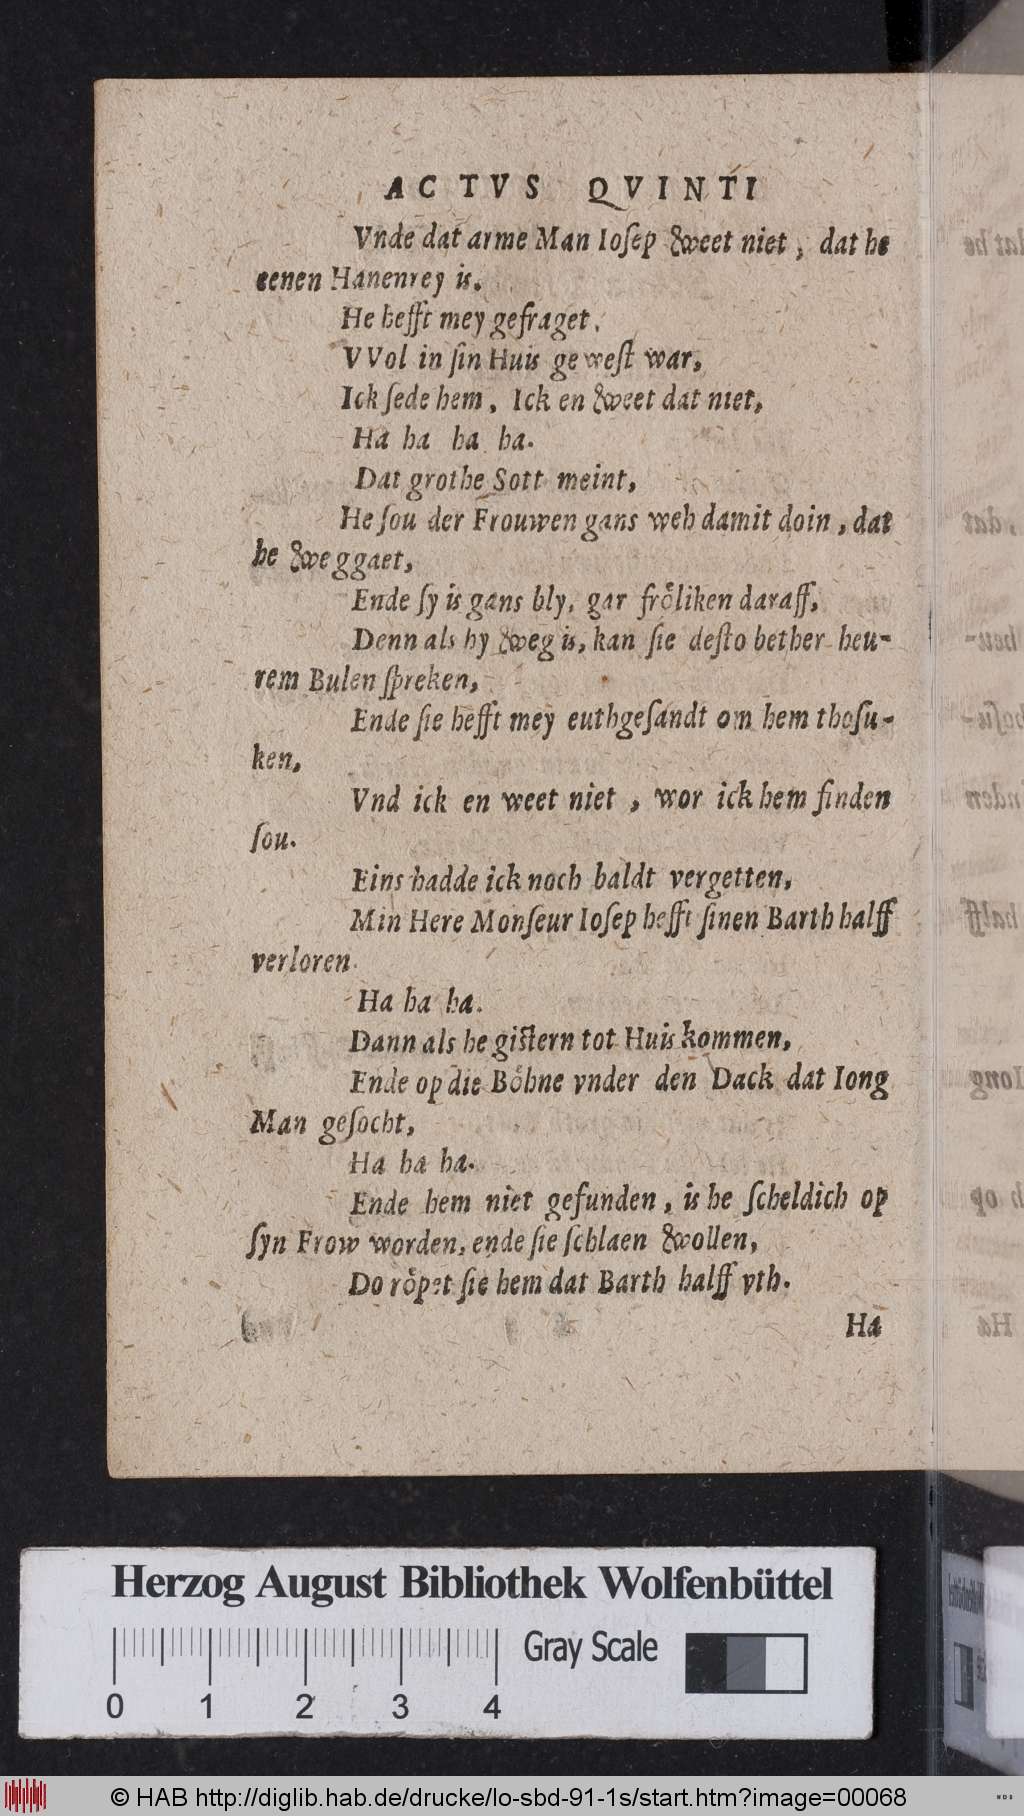 ACTVS QVINTI
Vnde dat arme Man Ioſep weet niet, dat he
eenen Hanenrey is.
He hefft mey gefraget.
VVol in ſin Huis geweſt war,
Ick ſede hem, Ick en weet dat niet,
Ha ha ha ha.
Dat grothe Sott meint,
He ſou der Frouwen gans weh damit doin, dat
he weggaet,
Ende ſy is gans bly, gar froͤliken daraff,
Denn als hy weg is, kan ſie deſto bether heu-
rem Bulen ſpreken,
Ende ſie hefft mey euthgeſandt om hem thoſu-
ken,
Vnd ick en weet niet, wor ick hem finden
ſou.
Eins hadde ick noch baldt vergetten,
Min Here Monſeur Ioſep hefft ſinen Barth halff
verloren.
Ha ha ha.
Dann als he giſtern tot Huis kommen,
Ende op die Boͤhne vnder den Dack dat Iong
Man geſocht,
Ha ha ha.
Ende hem niet gefunden, is he ſcheldich op
ſyn Frow worden, ende ſie ſchlaen wollen,
Do roͤpet ſie hem dat Barth halff vth.
Ha
Herzog August Bibliothek Wolfenbüttel
0 1 2 3 4 Gray Scale
© HAB http://diglib.hab.de/drucke/lo-sbd-91-1s/start.htm?image=00068